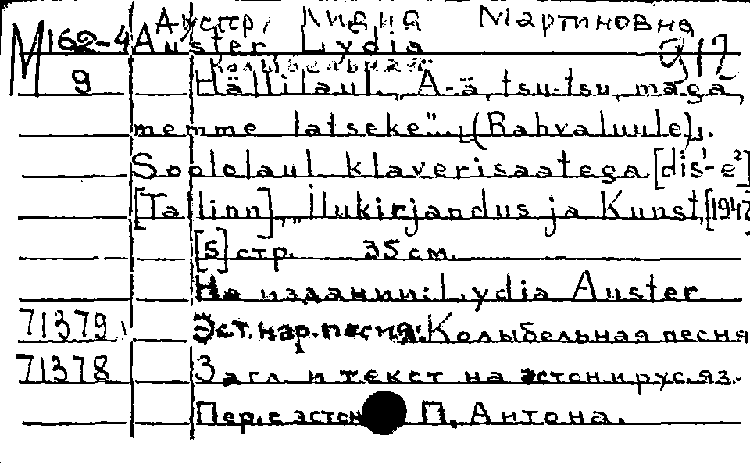 Аустер, Лидия Мартиновна
М 162-4 Auster Lydia 912
9 Колыбельная
Hällilaul. „A-ä, tsu-tsu, maga,
memme latseke“. (Rahvaluule).
Soololaul klaverisaatega [dis¹-e²]
[Tallinn], „Ilukirjandus ja Kunst, [194
[5] стр. 35 см.
На издании: Lydia Auster
71379 Эст. нар. песня: Колыбельная песня
71378 Загл. и текст на эстон. и рус. яз.
Пер. с эстон П. Антона.